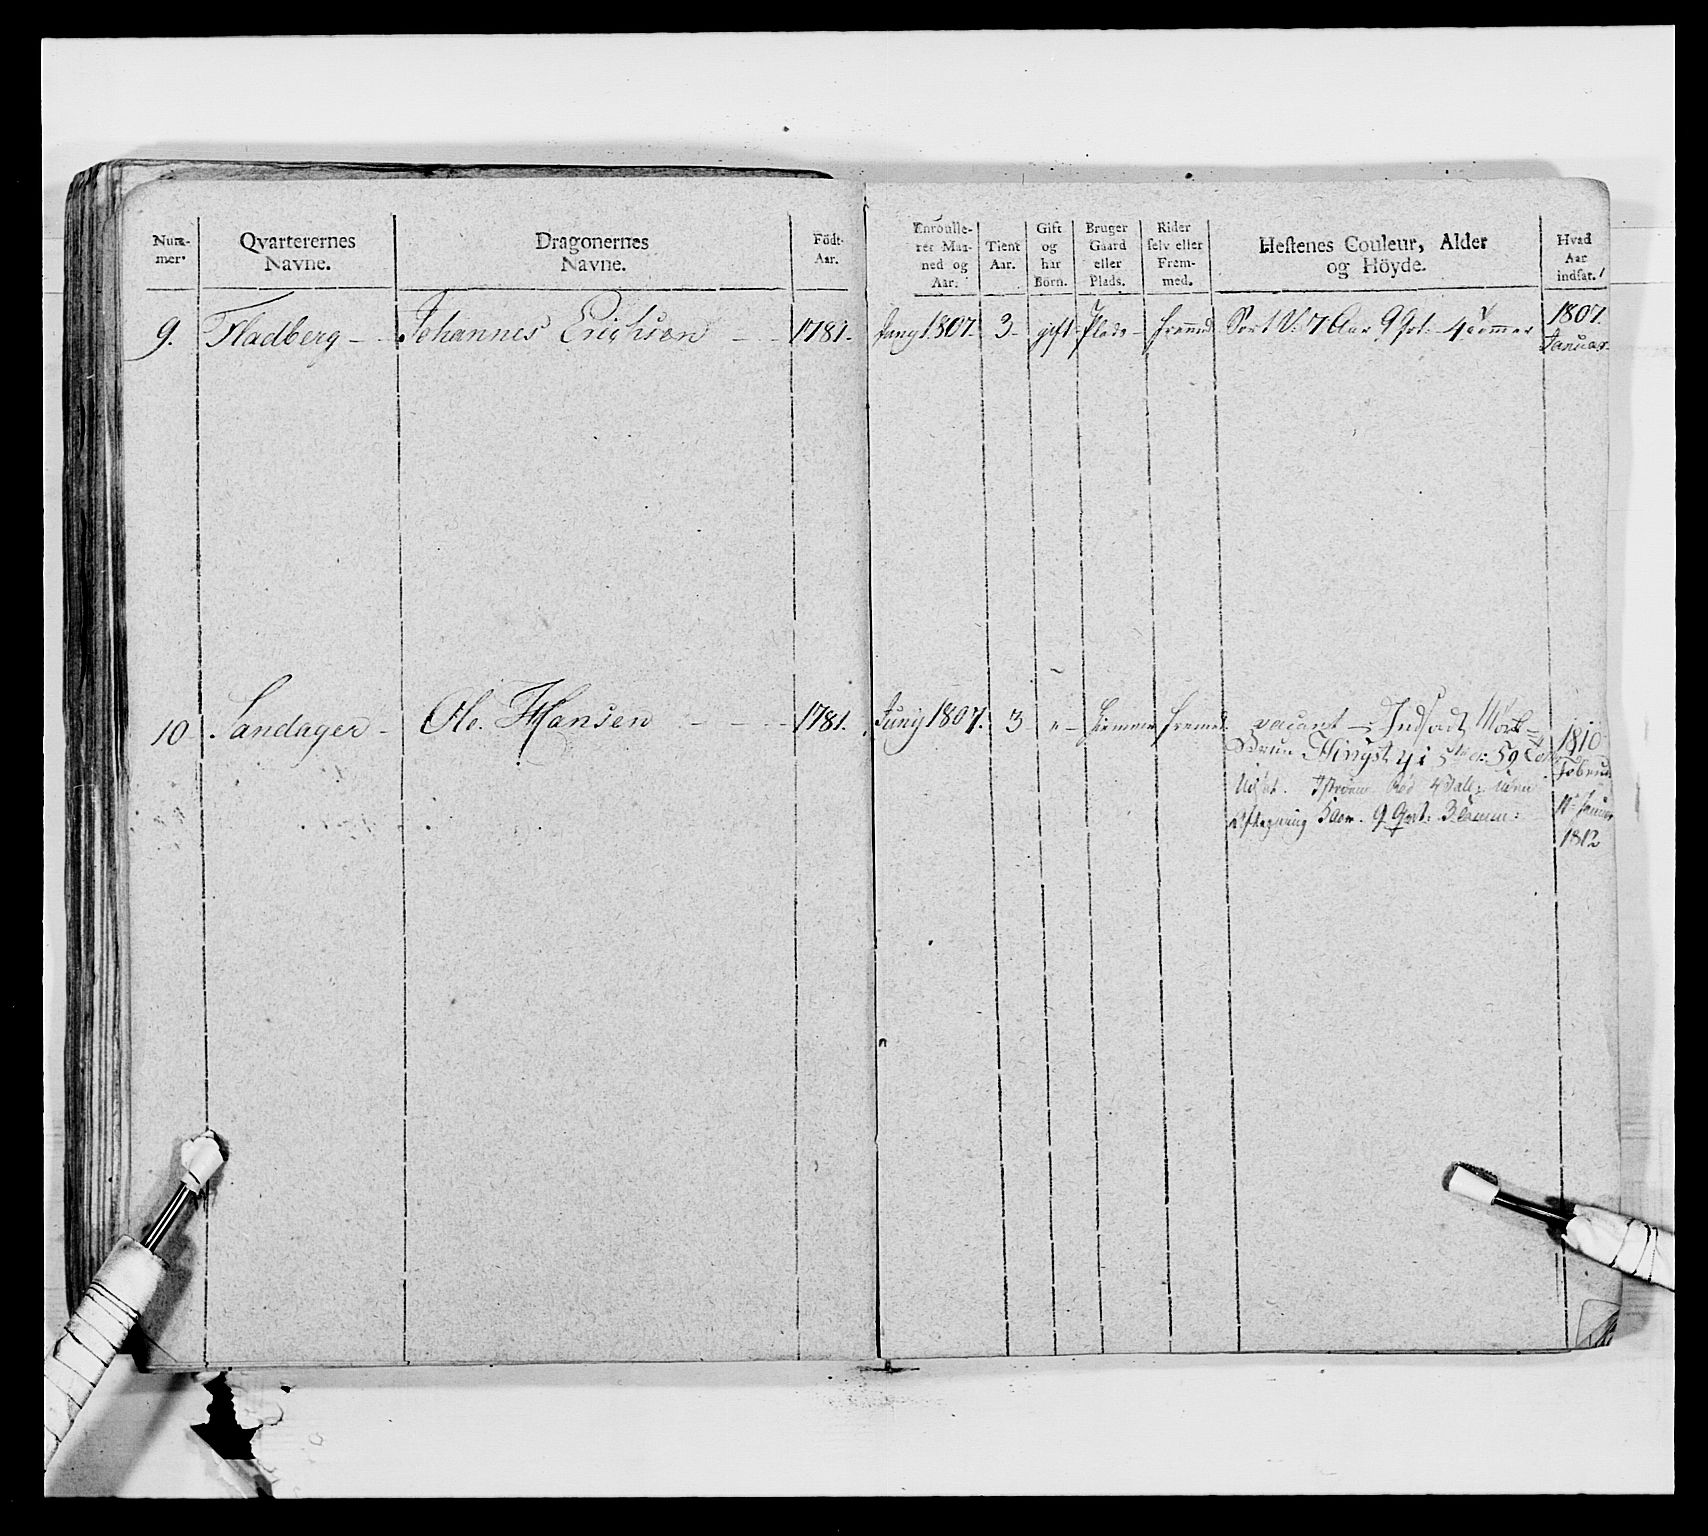 Num-
mer.
Qvarterernes
Navne.
Dragonernes
Navne.
Födt-
Aar.
Enroulle-
ret Maa-
ned og
Aar.
Tient
Aar.
Gift
og
har
Börn.
Bruger
Gaard
eller
Plads.
Rider
selv eller
Frem-
med.
Hestenes Couleur, Alder
og Höyde.
Hvad
Aar
indsat.
9. Fladberg - Johannes Erichsen - 1781. Juny 1807. 3 - gift - Plads - fremed Sort V: 7 Aar 9 Qrt: 4 Tommer 1807.
Januar
10 Sandager - Ole Hansen - - 1781. Juny 1807. 3 " - fremed vacant - Indsadt Mörk- 1810
Brun Hingst 4 i 5 59 Februar
Udsat. Rød uden Januar
Aftegning 5 Aar. 9 Qrt: 3 Tomm: 1812